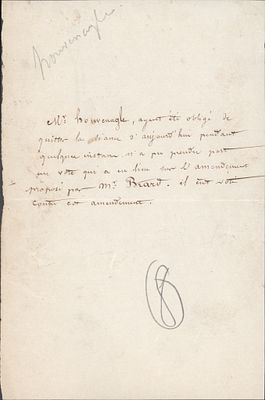 houvenagle
Mr. houvenagle, ayant été obligé de
quitter la séance d'aujourd'hui pendant
quelques instans n'a pu prendre part
au vote qui a eu lieu sur l'amendement
proposé par Mr. Béard. il eut voté
contre cet amendement.
8